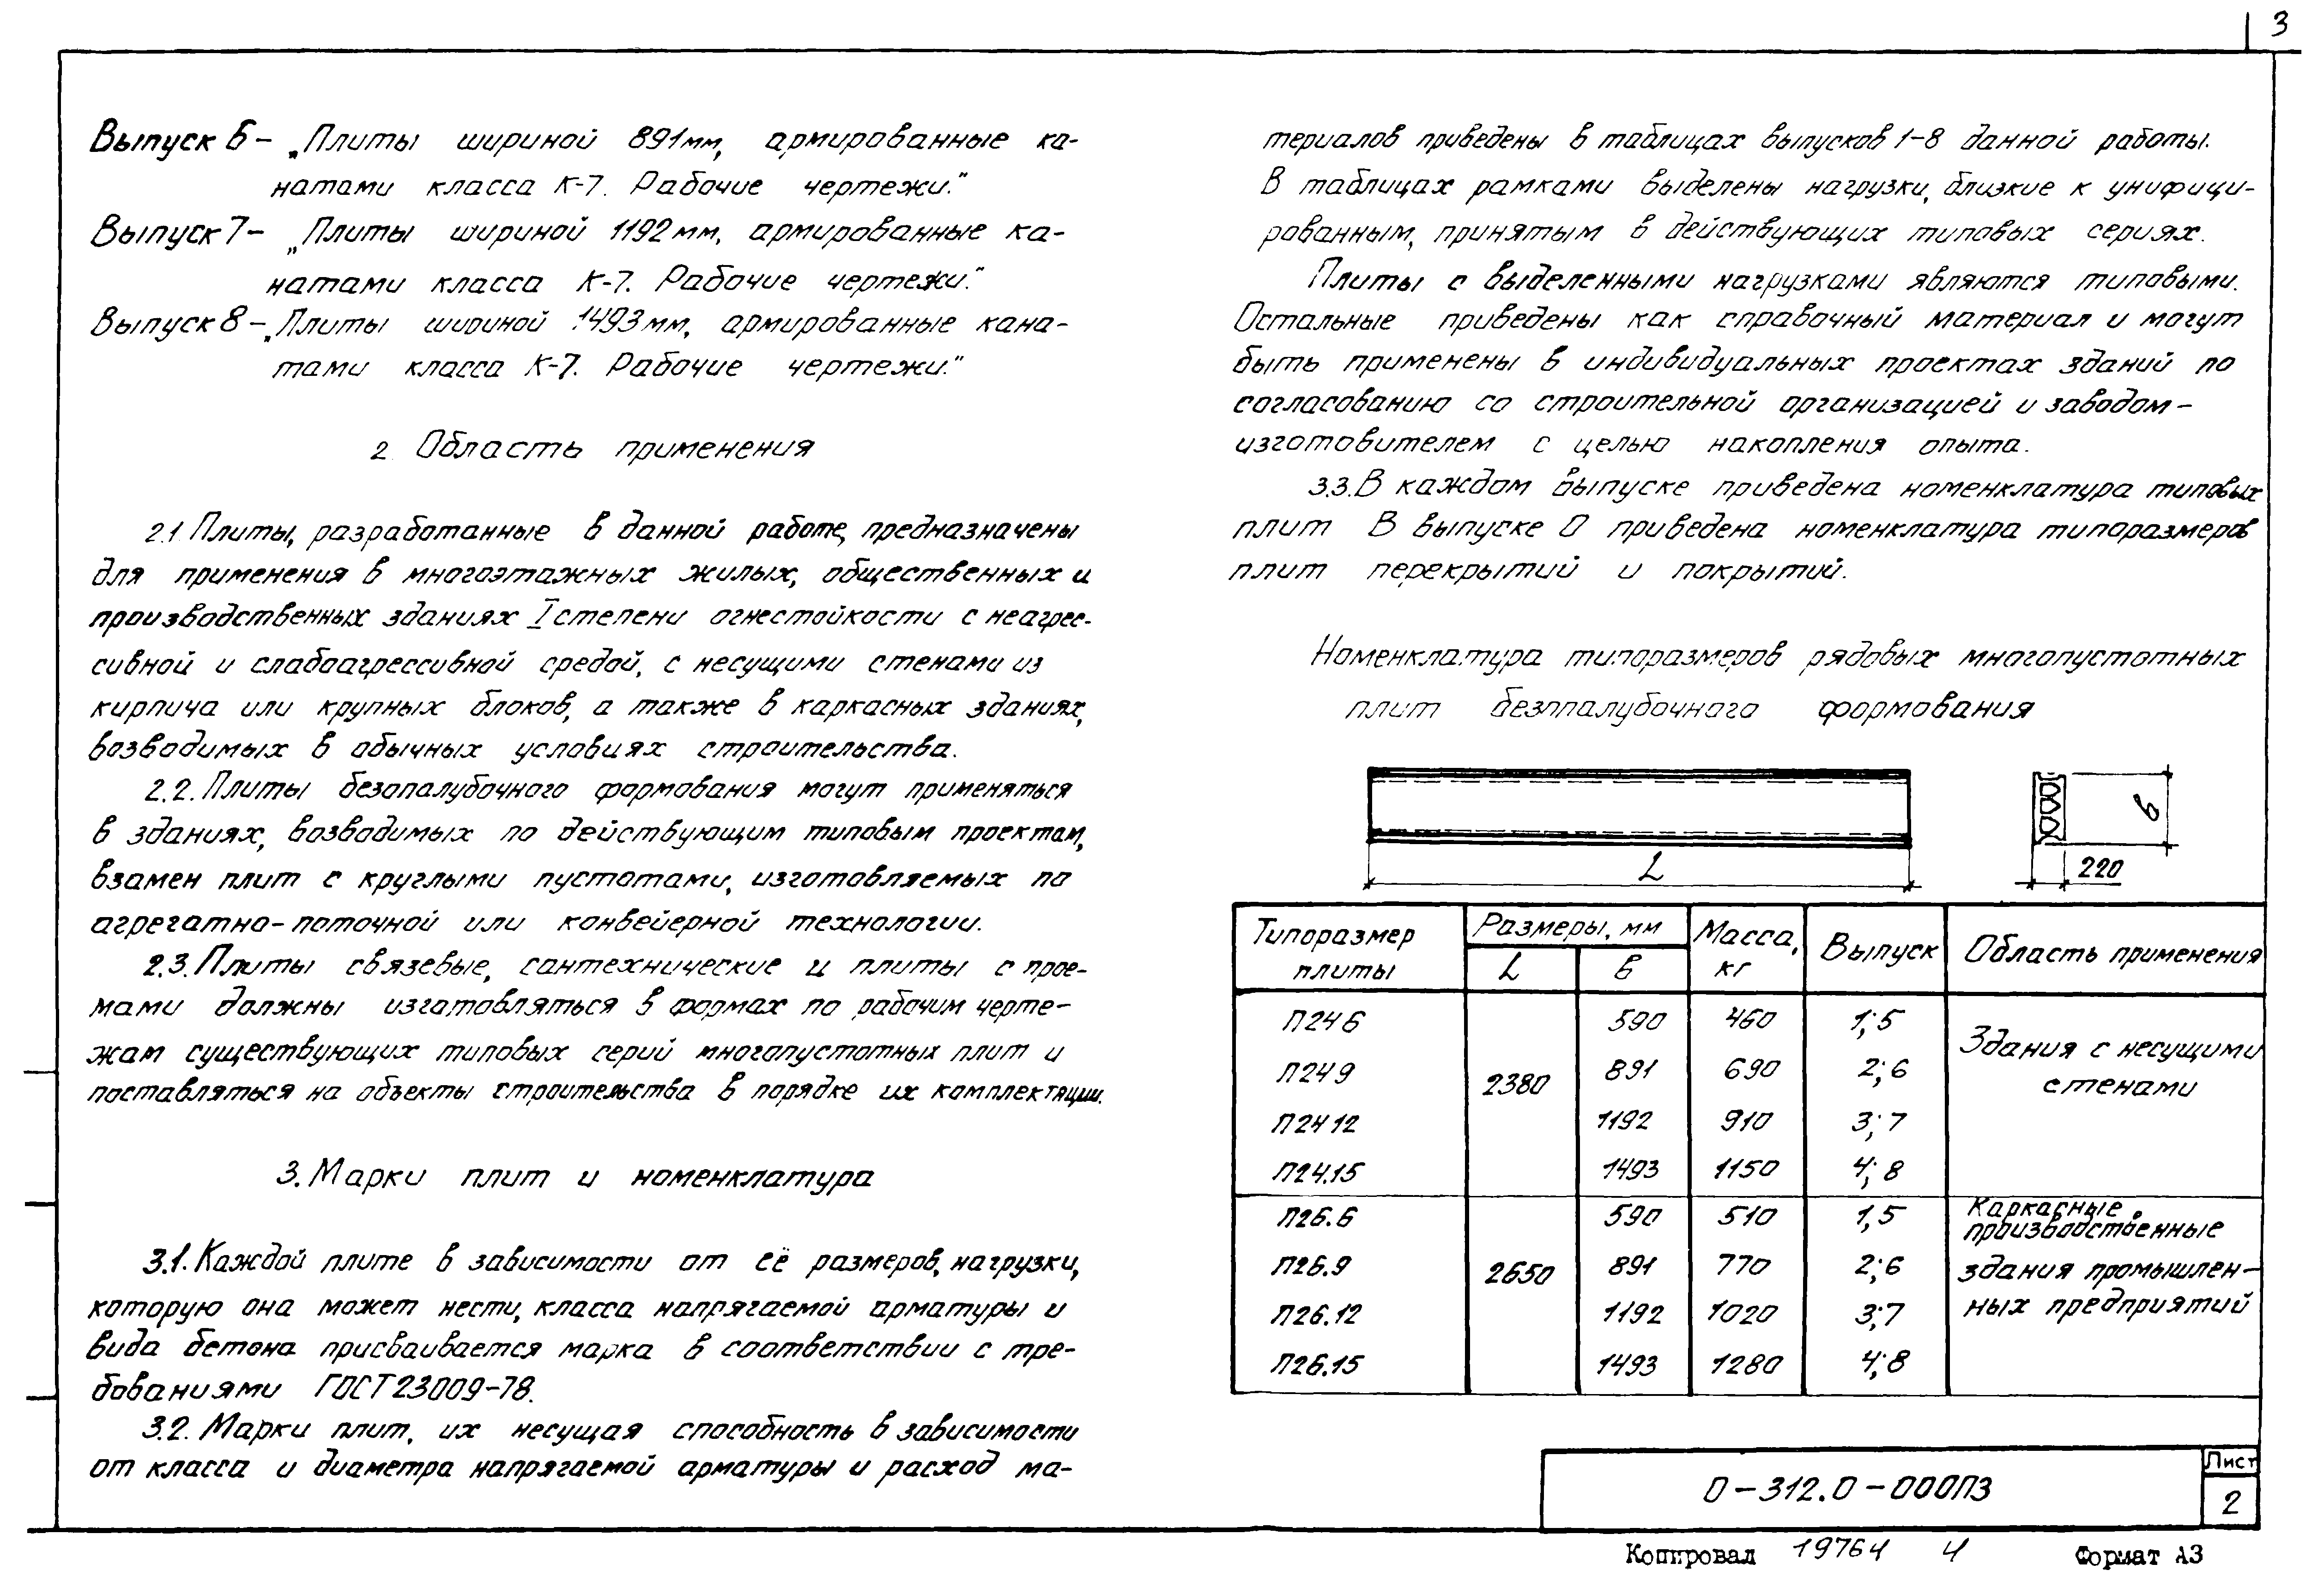 3
Выпуск 6 – „Плиты шириной 891мм, армированные ка-
натами класса К-7. Рабочие чертежи."
Выпуск 7 – „Плиты шириной 1192мм, армированные ка-
натами класса К-7. Рабочие чертежи."
Выпуск 8 – „Плиты шириной 1493мм, армированные кана-
тами класса К-7. Рабочие чертежи."
2. Область применения
2.1. Плиты, разработанные в данной работе, предназначены
для применения в многоэтажных жилых, общественных и
производственных зданиях I степени огнестойкости с неагрес-
сивной и слабоагрессивной средой, с несущими стенами из
кирпича или крупных блоков, а также в каркасных зданиях,
возводимых в обычных условиях строительства.
2.2. Плиты безопалубочного формования могут применяться
в зданиях, возводимых по действующим типовым проектам,
взамен плит с круглыми пустотами, изготовляемых по
агрегатно-поточной или конвейерной технологии.
2.3. Плиты связевые, сантехнические и плиты с прое-
мами должны изготовляться в формах по рабочим черте-
жам существующих типовых серий многопустотных плит и
поставляться на объекты строительства в порядке их комплектации.
3. Марки плит и номенклатура
3.1. Каждой плите в зависимости от её размеров, нагрузки,
которую она может нести, класса напрягаемой арматуры и
вида бетона присваивается марка в соответствии с тре-
бованиями ГОСТ 23009-78.
3.2. Марки плит, их несущая способность в зависимости
от класса и диаметра напрягаемой арматуры и расход ма-
териалов приведены в таблицах выпусков 1-8 данной работы.
В таблицах рамками выделены нагрузки, близкие к унифици-
рованным, принятым в действующих типовых сериях.
Плиты с выделенными нагрузками являются типовыми.
Остальные приведены как справочный материал и могут
быть применены в индивидуальных проектах зданий по
согласованию со строительной организацией и заводом-
изготовителем с целью накопления опыта.
3.3. В каждом выпуске приведена номенклатура типовых
плит В выпуске 0 приведена номенклатура типоразмеров
плит перекрытий и покрытий.
Номенклатура типоразмеров рядовых многопустотных
плит безопалубочного формования
L
в
220
Типоразмер плиты | Размеры, мм | Масса, кг | Выпуск | Область применения
L | в
П24 6 | 2380 | 590 | 460 | 1; 5 | Здания с несущими стенами
П24 9 | 891 | 690 | 2; 6
П24 12 | 1192 | 910 | 3; 7
П24.15 | 1493 | 1150 | 4; 8
П26.6 | 2650 | 590 | 510 | 1, 5 | Каркасные производственные здания промышлен-ных предприятий
П26.9 | 891 | 770 | 2; 6
П26.12 | 1192 | 1020 | 3; 7
П26.15 | 1493 | 1280 | 4; 8
0-312.0-000ПЗ
Лист
2
Копировал 19764 4 Формат А3